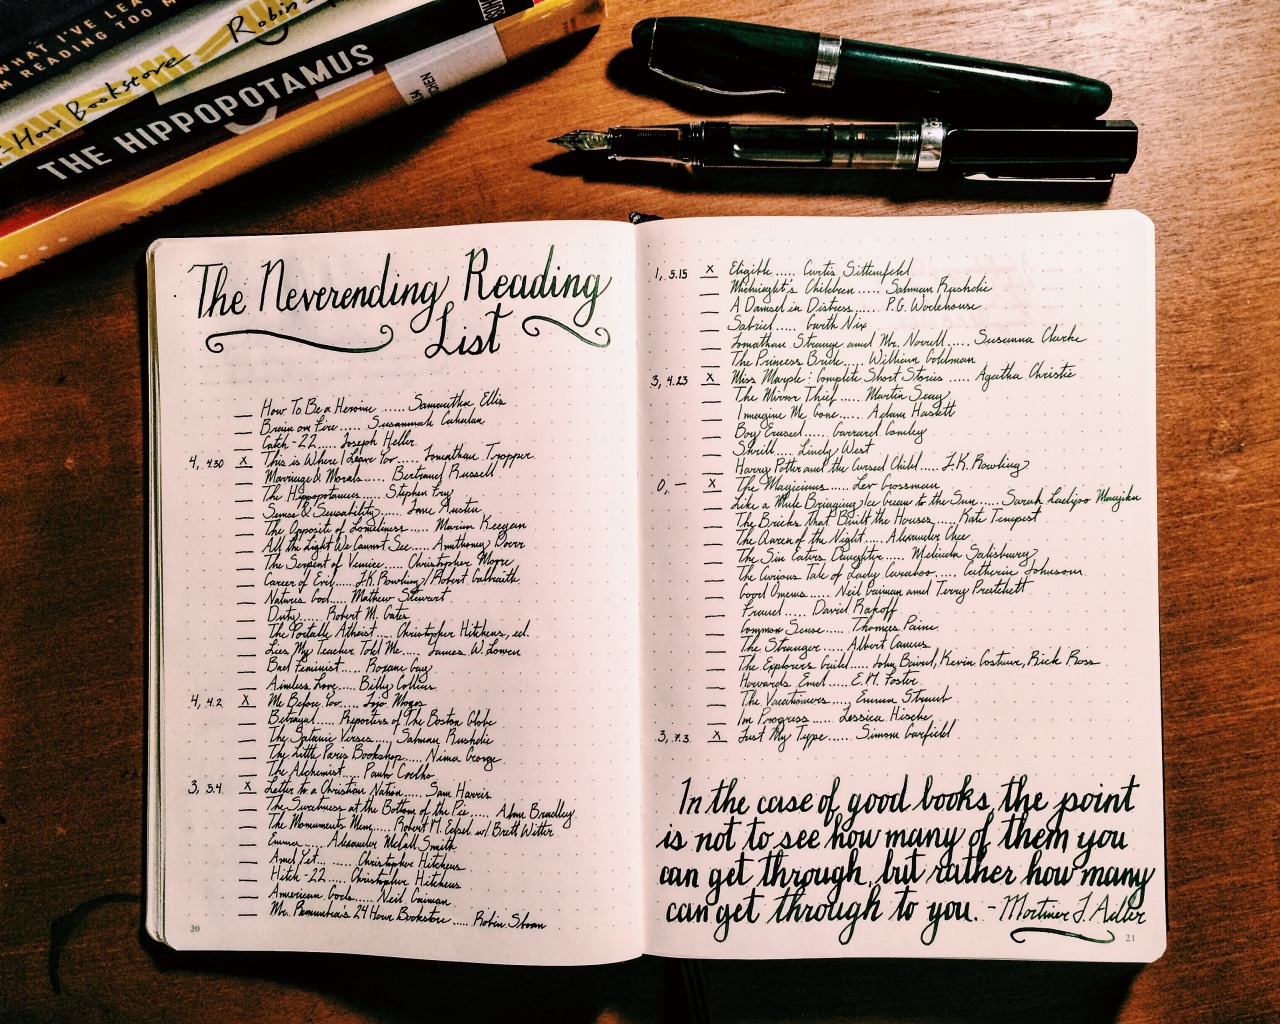 WHAT I'VE LEA
M READING TOO M
-Hour Bookstore Robin S
THE HIPPOPOTAMUS
The Neverending Reading
List
How To Be a Heroine ...... Samantha Ellis
Brain on Fire ..... Susannah Cahalan
Catch-22 .... Joseph Heller
4, 4.30 X This is Where I Leave You ..... Jonathan Tropper
Marriage & Morals ..... Bertrand Russell
The Hippopotamus ..... Stephen Fry
Sense & Sensability ..... Jane Austin
The Opposite of Loneliness ..... Marina Keegan
All the Light We Cannot See ..... Anthony Doerr
The Serpent of Venice ..... Christopher Moore
Career of Evil ..... J.K. Rowling/Robert Galbraith
Natures God ..... Mathew Stewart
Duty ..... Robert M. Gates
The Portable Atheist .... Christopher Hitchens, ed.
Lies My Teacher Told Me .... James W. Lowen
Bad Feminist .... Roxane Gay
Aimless Love .... Billy Collins
4, 4.2 X Me Before You .... Jojo Moyes
Betrayal .... Reporters of The Boston Globe
The Satanic Verses .... Salman Rushdie
The Little Paris Bookshop .... Nina George
The Alchemist .... Paulo Coelho
3, 3.4 X Letter to a Christian Nation .... Sam Harris
The Sweetness at the Bottom of the Pie ..... Alan Bradley
The Monuments Men ..... Robert M. Edsel w/ Brett Witter
Emma .... Alexander McCall Smith
And Yet .... Christopher Hitchens
Hitch-22 .... Christopher Hitchens
American Gods .... Neil Gaiman
Mr. Penumbra's 24 Hour Bookstore ..... Robin Sloan
20
1, 5.15 X Eligible ..... Curtis Sittenfeld
Midnight's Children ...... Salman Rushdie
A Damsel in Distress ..... P.G. Wodehouse
Sabriel ..... Garth Nix
Jonathan Strange and Mr. Norrell ..... Susanna Clarke
The Princess Bride .... William Goldman
3, 4.23 X Miss Marple: Complete Short Stories ..... Agatha Christie
The Mirror Thief ..... Martin Seay
Imagine Me Gone .... Adam Haslett
Boy Erased ..... Garrard Conley
Shrill .... Lindy West
Harry Potter and the Cursed Child .... J.K. Rowling
0, — X The Magicians .... Lev Grossman
Like a Mule Bringing Ice Cream to the Sun ..... Sarah Ladipo Manyika
The Bricks that Built the Houses ..... Kate Tempest
The Queen of the Night .... Alexander Chee
The Sin Eaters Daughter .... Melinda Salisbury
The Curious Tale of Lady Caraboo .... Catherine Johnson
Good Omens .... Neil Gaiman and Terry Pratchett
Fraud .... David Rakoff
Common Sense .... Thomas Paine
The Stranger .... Albert Camus
The Explorers Guild .... John Baird, Kevin Costner, Rick Ross
Howards End .... E.M. Foster
The Vacationers .... Emma Straub
In Progress .... Jessica Hische
3, 7.3 X Just My Type .... Simon Garfield
In the case of good books, the point
is not to see how many of them you
can get through, but rather how many
can get through to you. - Mortimer J. Adler
21